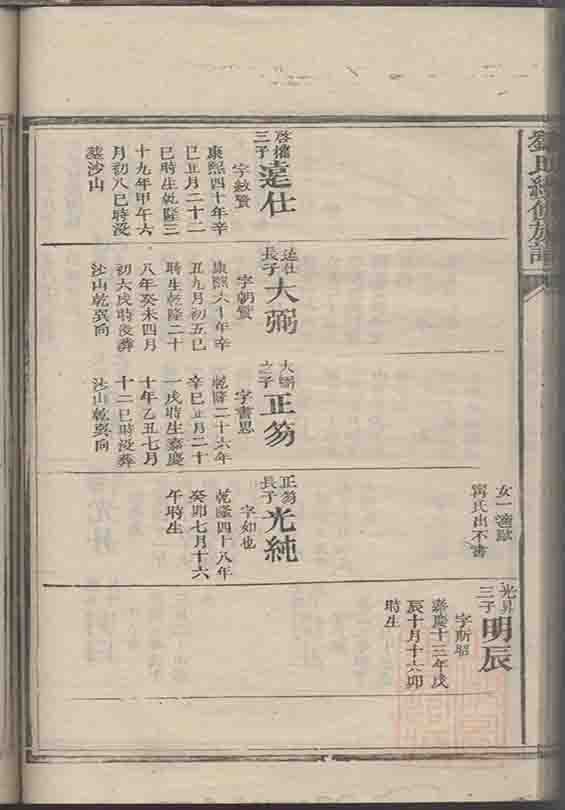 劉氏續修族譜
女一適歐
寗氏出不書
光昇
三子
明辰
字斯昭
嘉慶十三年戊
辰十月十六卯
時生
三子
遠仕
字敏贊
康熙四十年辛
巳正月二十二
巳時生乾隆三
十九年甲午六
月初八巳時没
塟沙山
遠仕
長子
大弼
字朝贊
康熙六十年辛
丑九月初五巳
時生乾隆二十
八年癸未四月
初六戌時没葬
沙山乾巽向
大弼
之子
正笏
字書思
乾隆二十六年
辛巳正月二十
一戌時生嘉慶
十年乙丑七月
十二巳時没葬
沙山乾巽向
正笏
長子
光純
字如也
乾隆四十八年
癸卯七月十六
午時生